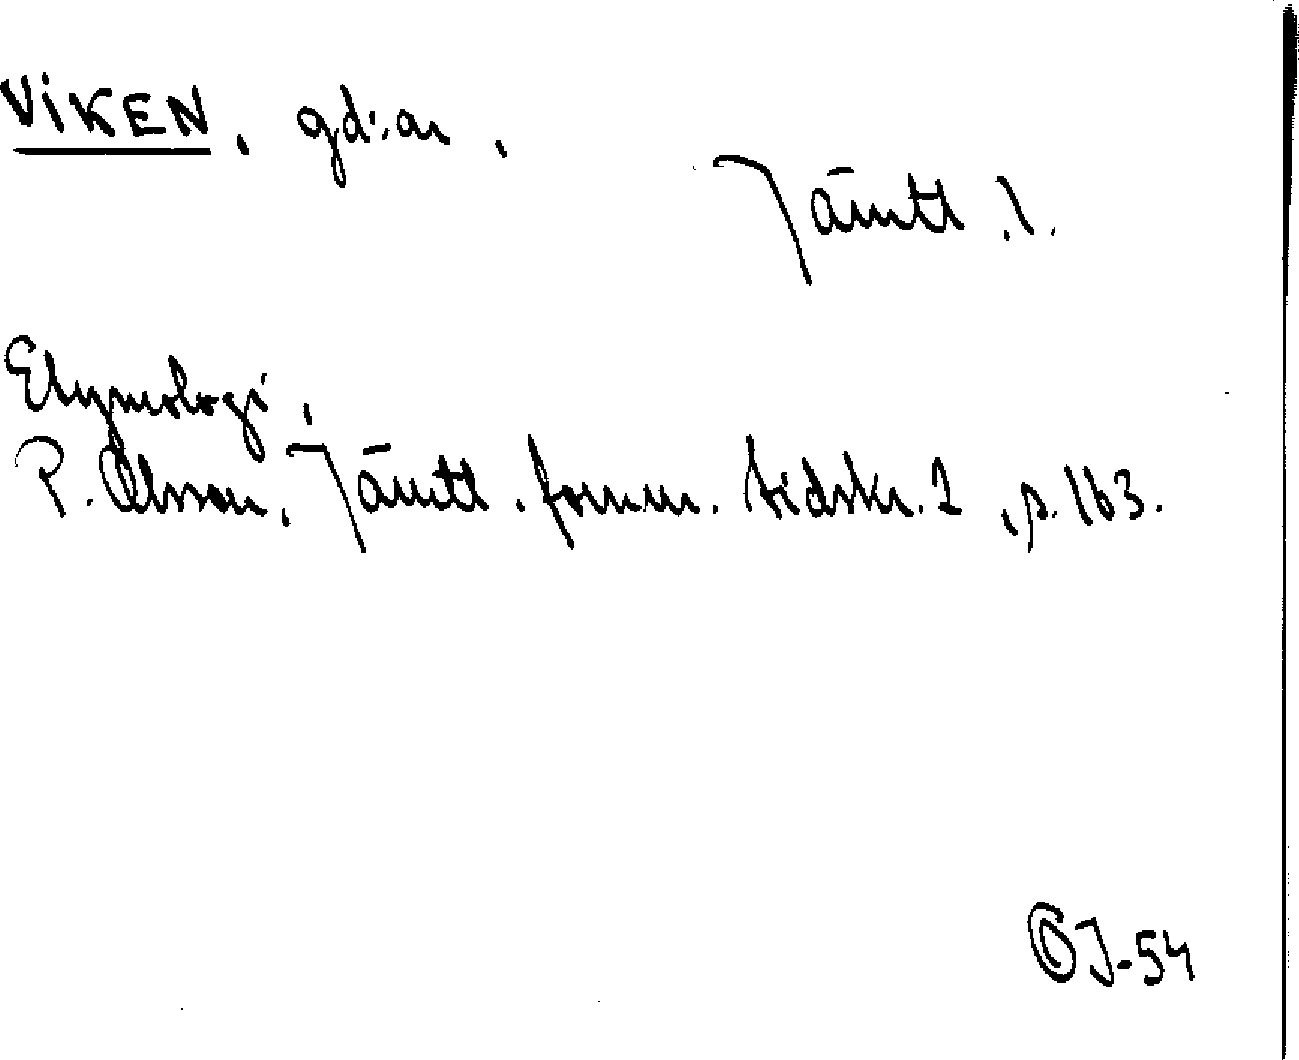 VIKEN, gd:ar,
Jämtl. l.
Etymologi,
P. Olsson, Jämtl. fornm. tidskr. 2, s. 163.
OJ-54